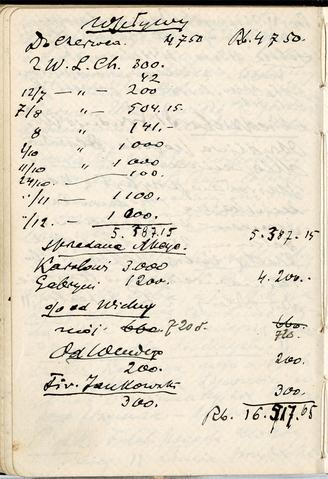 Wpływy
Do Czerwca. 4750 Rb. 4750.
z W. L. Ch. 300.
42
12/7 — „ — 200
7/8 „ — 504.15
8 „ 141.-
2/10 „ 1000
11/10 „ 1000
24/10. — 100.
"/11 — 1100.
"/12. — 1000.
5.587.15 5.387.15
sprzedana
Karolowi 3.000
Gabryni 1200. 4.200.-
od
mój 660. 720 660.
720.
Od
200. 200.
Fir. Jankowski
300. 300.
Rb. 16.517.05